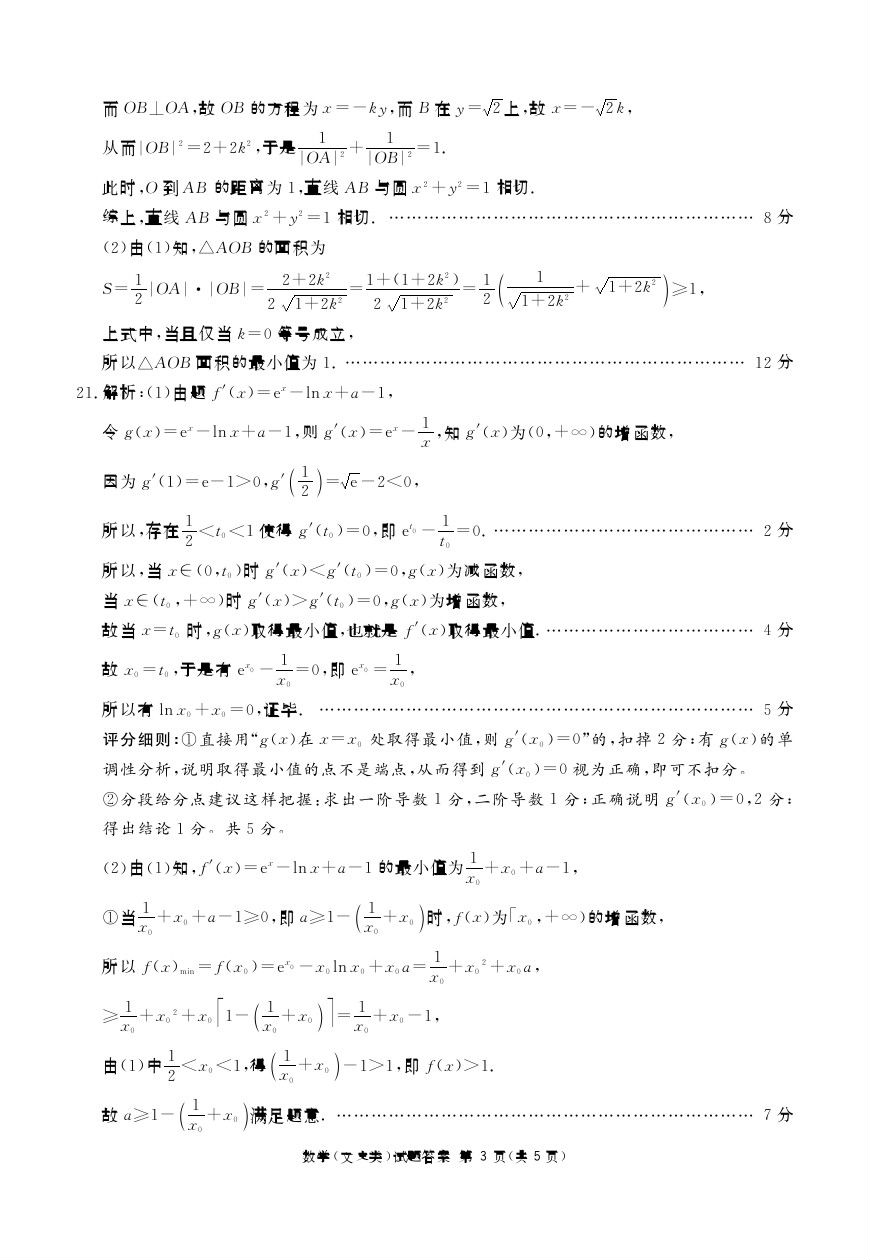 而 OB⊥OA,故 OB 的方程为 x=-ky,而 B 在 y=√2上,故 x=-√2k,
从而|OB|²=2+2k²,于是1/|OA|²+1/|OB|²=1.
此时,O 到 AB 的距离为 1,直线 AB 与圆 x²+y²=1 相切.
综上,直线 AB 与圆 x²+y²=1 相切. …………………………………………………………… 8 分
(2)由(1)知,△AOB 的面积为
S=1/2|OA|·|OB|=(2+2k²)/(2√(1+2k²))=(1+(1+2k²))/(2√(1+2k²))=1/2(1/√(1+2k²)+√(1+2k²))≥1,
上式中,当且仅当 k=0 等号成立,
所以△AOB 面积的最小值为 1. …………………………………………………………… 12 分
21.解析:(1)由题 f′(x)=eˣ-ln x+a-1,
令 g(x)=eˣ-ln x+a-1,则 g′(x)=eˣ-1/x,知 g′(x)为(0,+∞)的增函数,
因为 g′(1)=e-1>0,g′(1/2)=√e-2<0,
所以,存在1/2<t₀<1 使得 g′(t₀)=0,即 e^(t₀)-1/t₀=0. ……………………………………… 2 分
所以,当 x∈(0,t₀)时 g′(x)<g′(t₀)=0,g(x)为减函数,
当 x∈(t₀,+∞)时 g′(x)>g′(t₀)=0,g(x)为增函数,
故当 x=t₀ 时,g(x)取得最小值,也就是 f′(x)取得最小值. ……………………………… 4 分
故 x₀=t₀,于是有 e^(x₀)-1/x₀=0,即 e^(x₀)=1/x₀,
所以有 ln x₀+x₀=0,证毕. ………………………………………………………………… 5 分
评分细则:①直接用“g(x)在 x=x₀ 处取得最小值,则 g′(x₀)=0”的,扣掉 2 分;有 g(x)的单
调性分析,说明取得最小值的点不是端点,从而得到 g′(x₀)=0 视为正确,即可不扣分。
②分段给分点建议这样把握:求出一阶导数 1 分,二阶导数 1 分;正确说明 g′(x₀)=0,2 分;
得出结论 1 分。共 5 分。
(2)由(1)知,f′(x)=eˣ-ln x+a-1 的最小值为1/x₀+x₀+a-1,
①当1/x₀+x₀+a-1≥0,即 a≥1-(1/x₀+x₀)时,f(x)为[x₀,+∞)的增函数,
所以 f(x)min=f(x₀)=e^(x₀)-x₀ln x₀+x₀a=1/x₀+x₀²+x₀a,
≥1/x₀+x₀²+x₀[1-(1/x₀+x₀)]=1/x₀+x₀-1,
由(1)中1/2<x₀<1,得(1/x₀+x₀)-1>1,即 f(x)>1.
故 a≥1-(1/x₀+x₀)满足题意. ……………………………………………………………… 7 分
数学(文史类)试题答案 第 3 页(共 5 页)